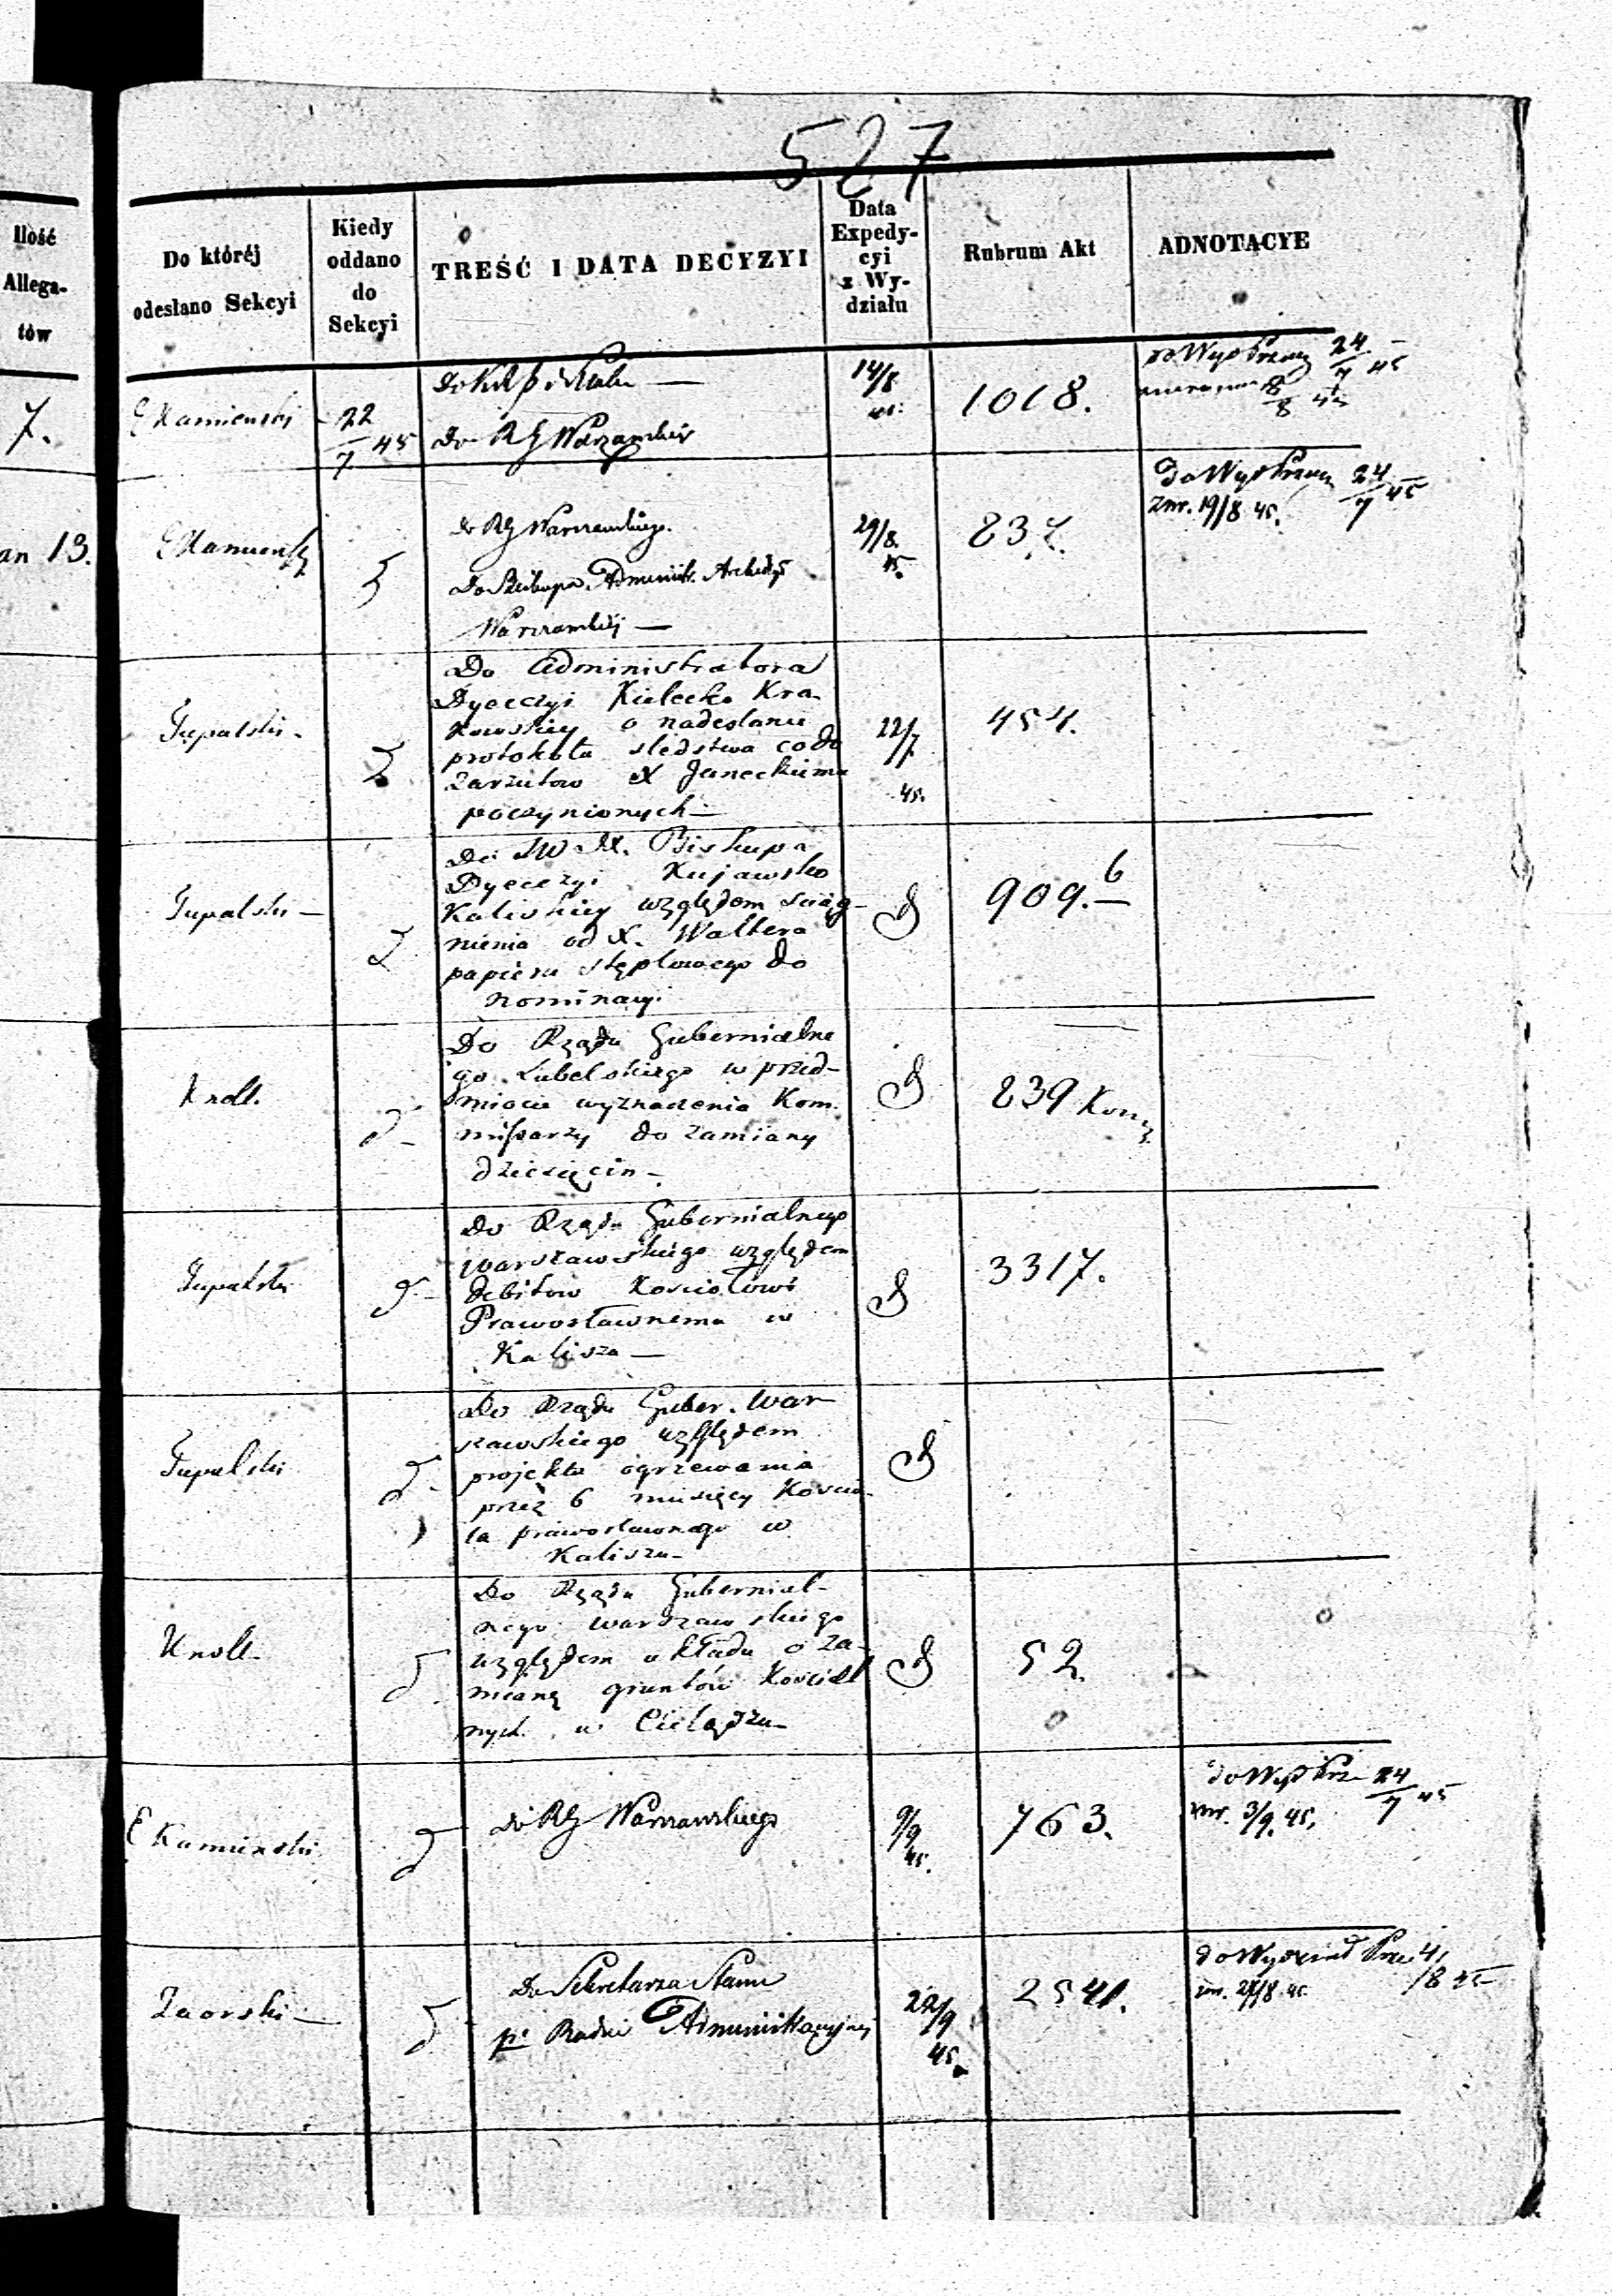 527
Ilość
Allega-
tów
Do któréj
odesłano Sekcyi
Kiedy
oddano
do
Sekcyi
TREŚĆ I DATA DECYZYI
Data
Expedy-
cyi
z Wy-
działu
Rubrum Akt
ADNOTACYE
7.
E Kamienski
22/7 45
Do
Do RG Warszawskiego
14/8
45.
1018.
do Wyp Prawn 24/7 45
8/8 45
13.
E Kamienski
do RG Warszawskiego.
Do Biskupa Administr. Archidyec
Warszawskiej —
29/8.
45.
837.
Do Wyp Prawn 24/7 45
zwr. 19/8 45.
Tupalski -
Do Administratora
Dyecezyi Kielecko Kra-
kowskiey o nadesłanie
protokołu sledstwa co do
zarzutow X Janeckiemu
poczynionych —
22/7
45.
454.
Tupalski —
Do JW X. Biskupa
Dyecezyi Kujawsko
Kaliskiey względem sciąg-
nienia od X. Waltera
papieru stęplowego do
nominacyi
909. 6
Knoll.
Do Rządu Gubernialne
go Lubelskiego w przed-
miocie wyznaczenia Kom-
missarzy do zamiany
dziesięcin —
839 Kom
Tupalski
Do Rządu Gubernialnego
warszawskiego względem
debitow Kosciołowi
Prawosławnemu w
Kaliszu —
3317.
Tupalski
Do Rządu Guber. War
szawskiego względem
projektu ogrzewania
przez 6 miesięcy Koscio-
ła prawosławnego w
Kaliszu —
Knoll.
Do Rządu Gubernial-
nego warszawskiego
względem układu o za-
mianę gruntów Kosciel
nych w Cielądzu —
52.
E Kamienski
do RG Warszawskiego
9/9
45.
763.
do Wyp Prz 24/7 45
zwr. 3/9. 45.
Zaorski —
Do Sekretarza Stanu
pr Radzie Administracyjnej
22/9
45.
2541.
do Wydział Praw 4/8 45
zwr. 28/8 45